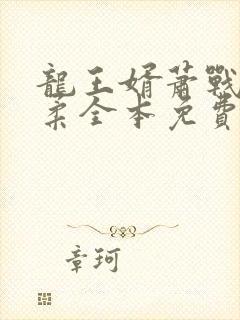 龍王婿蕭戰
柔全本免費
章珂